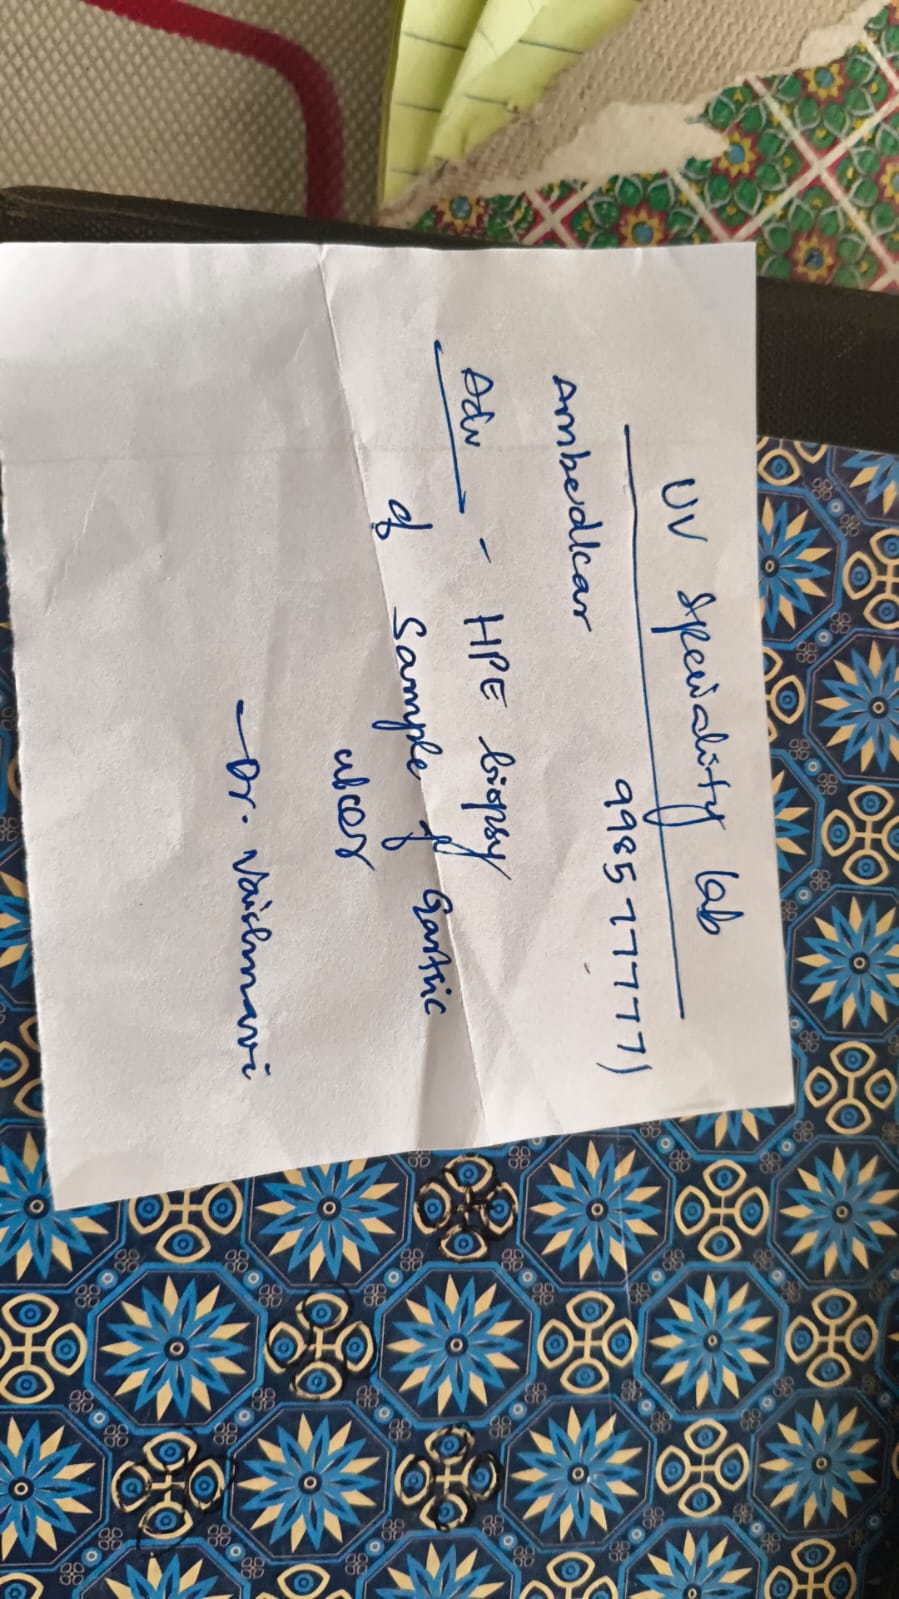 UV Speciality lab
9985777771
Ambedkar
Adv - HPE biopsy
of Sample of Gastric
ulcer
- Dr. Vaishnavi